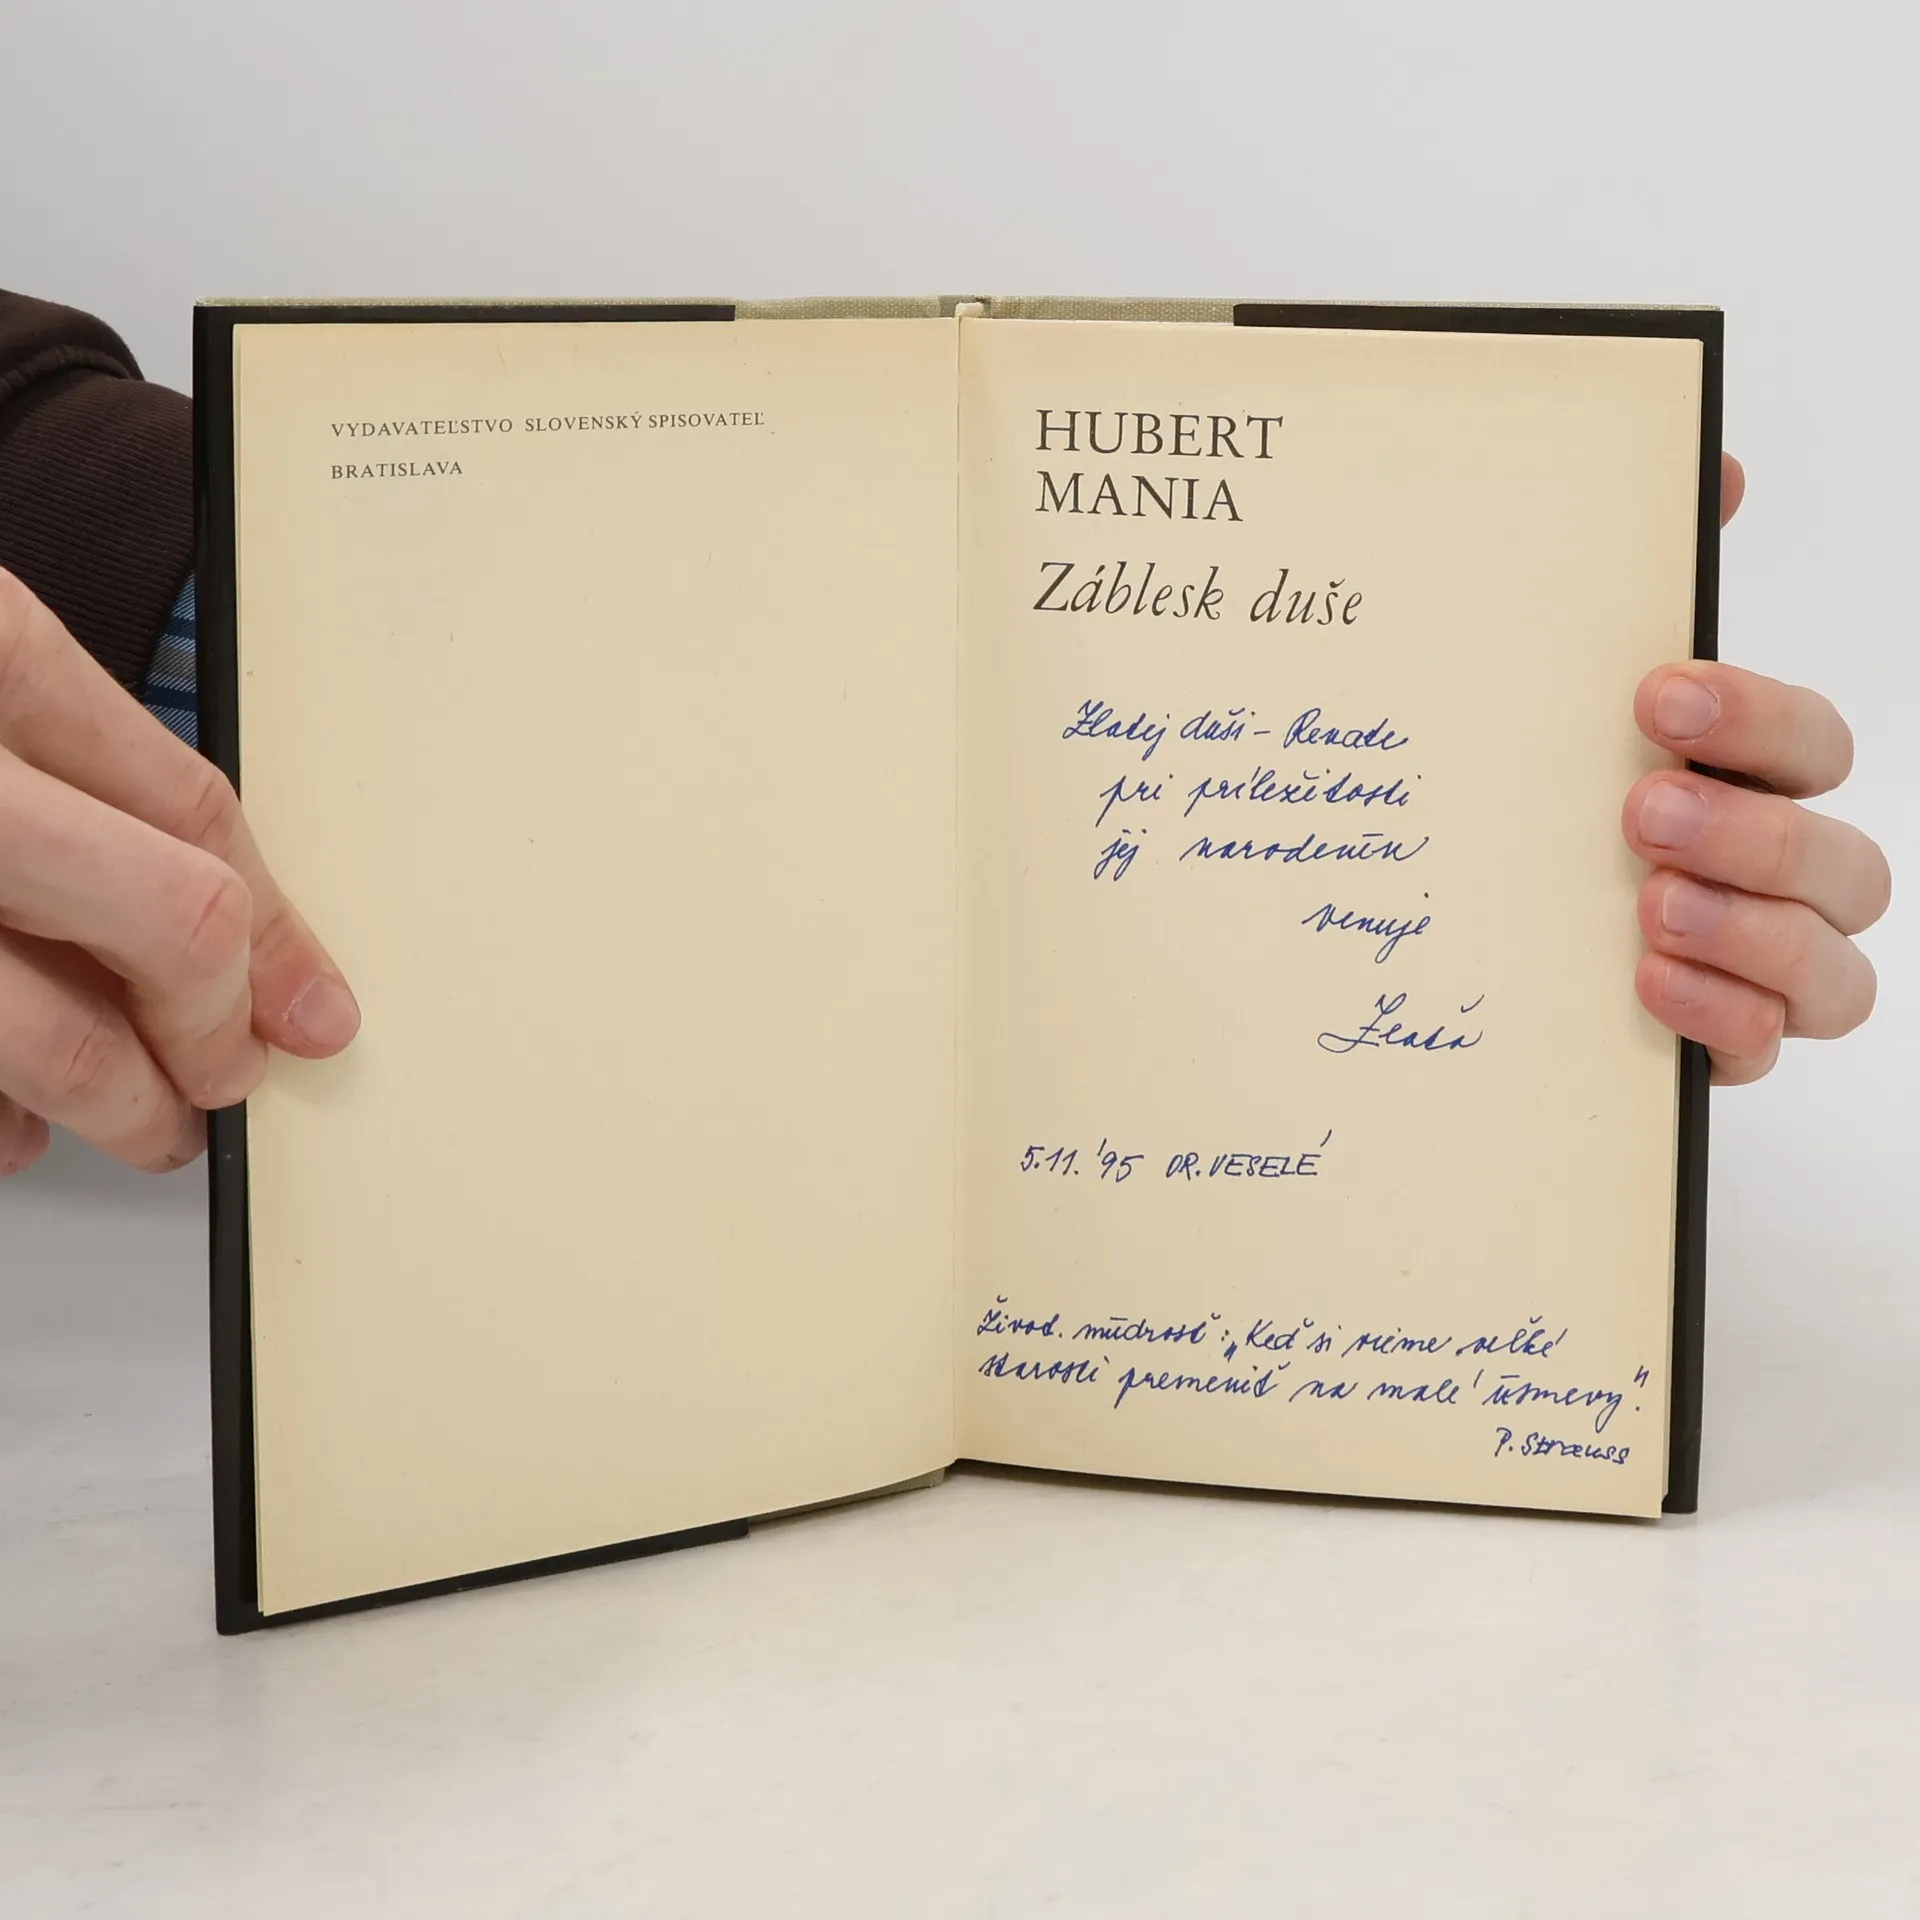 VYDAVATEĽSTVO SLOVENSKÝ SPISOVATEĽ
BRATISLAVA
HUBERT
MANIA
Záblesk duše
Zlatej duši – Renate
pri príležitosti
jej narodenín
venuje
Zlatá
5.11. '95 DR. VESELÉ
Život. múdrosť: „Keď si vieme veľké
starosti premeniť na malé úsmevy."
P. Strauss